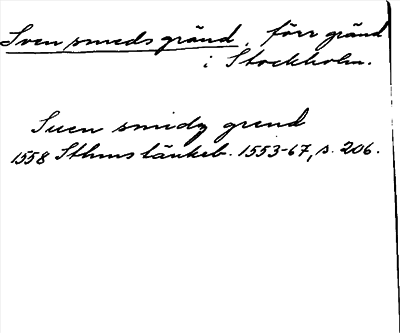 Sven smeds gränd, förr gränd
i Stockholm.
Suen smidz grend
1558 Sthms tänkeb. 1553-67, s. 206.